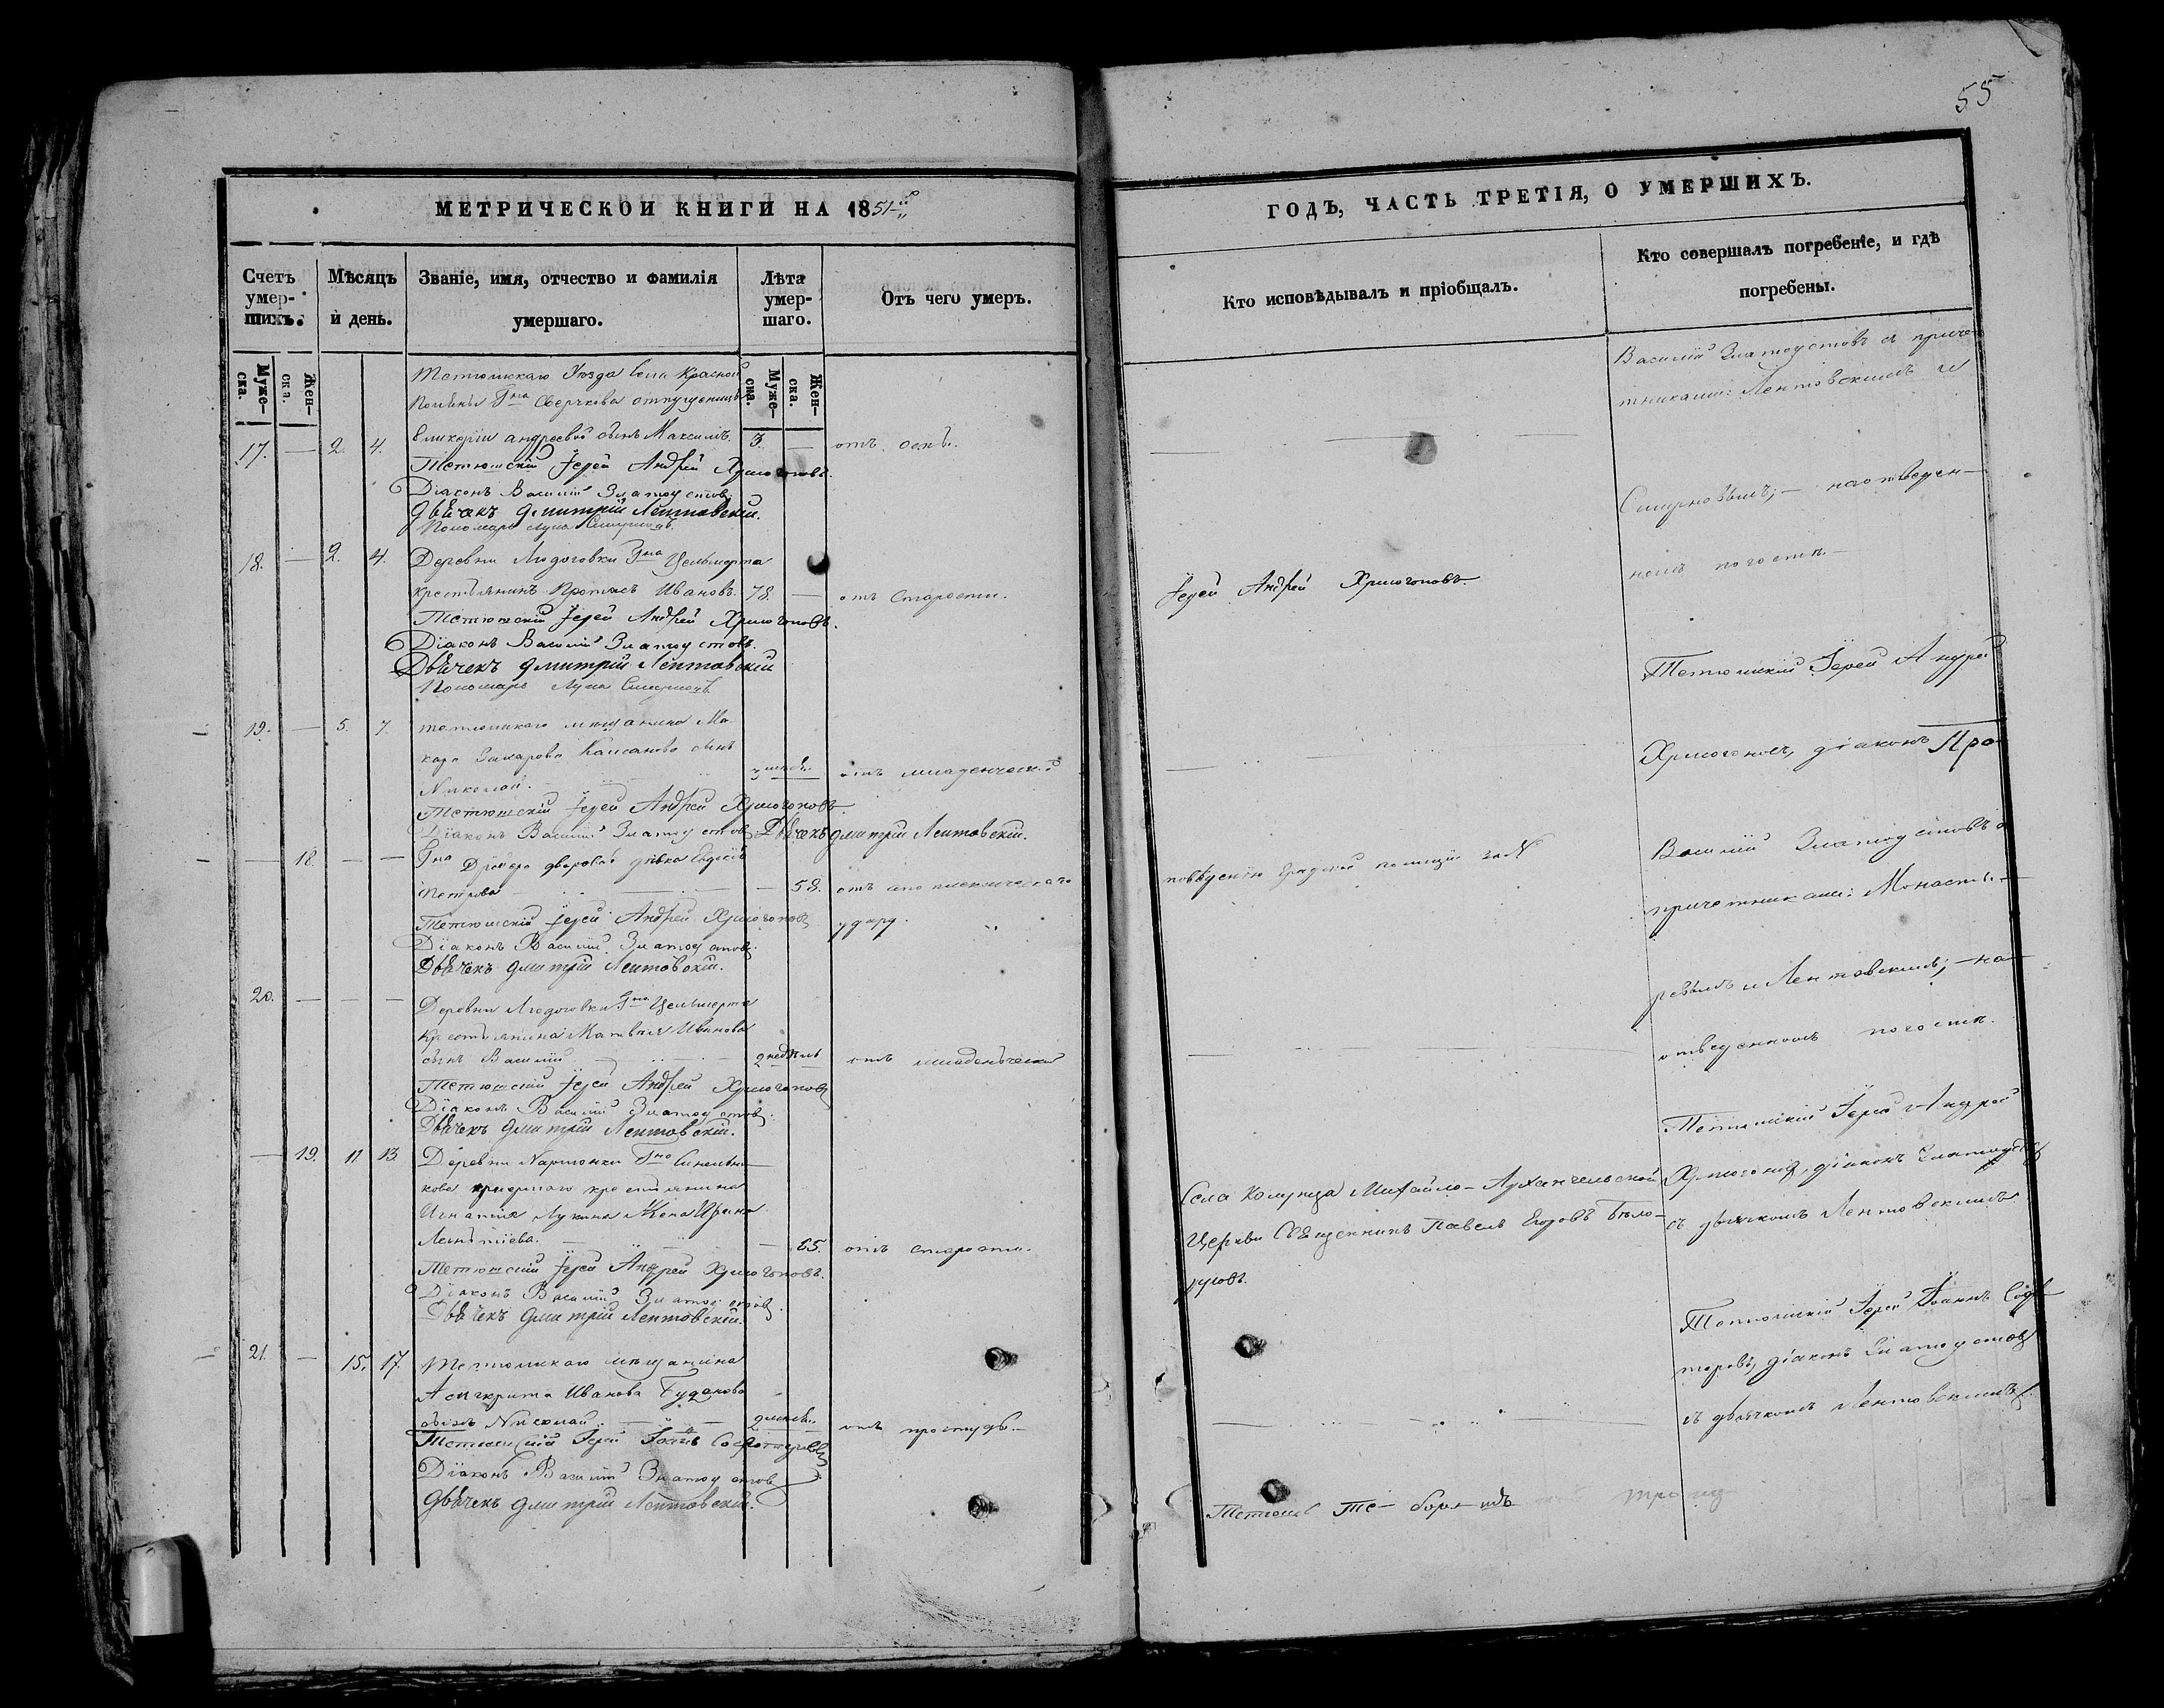 МЕТРИЧЕСКОЙ КНИГИ НА 1851й
Счетъ умер-шихъ.
Мѣсяцъ и день.
Званіе, имя, отчество и фамилія умершаго.
Лѣта умер-шаго.
Отъ чего умеръ.
Муже-ска.
Жен-ска.
Муже-ска.
Жен-ска.
Тетюшскаго Уѣзда села Красной
Поляны Гна Сверчкова отпущеницы
17. — 2. 4. Гликеріи Андреевой сынъ Максимъ. 3. — отъ оспы.
Тетюшскій Іерей Андрей Хрисогоновъ.
Діаконъ Василій Златоустовъ.
Дьячекъ Дмитрій Лентовскій.
Пономарь Лука Смирновъ.
18. — 2. 4. Деревни Людоговки Гна Цельмерта
крестьянинъ Протасъ Ивановъ. 78. — отъ старости.
Тетюшскій Іерей Андрей Хрисогоновъ.
Діаконъ Василій Златоустовъ.
Дьячекъ Дмитрій Лентовскій
Пономарь Лука Смирновъ
19. — 5. 7. тетюшскаго мѣщанина Ма-
кара Захарова сынъ
Николай. отъ младенческой
Тетюшскій Іерей Андрей Хрисогоновъ
Діаконъ Василій Златоустовъ. Дьячекъ Дмитрій Лентовскій.
— 18. — — Гна дворовая дѣвка
Петрова — 58. отъ апоплексическаго
Тетюшскій Іерей Андрей Хрисогоновъ удару.
Діаконъ Василій Златоустовъ.
Дьячекъ Дмитрій Лентовскій.
20. — — — Деревни Людоговки Гна Цельмерта
крестьянина Матвѣя Иванова
сынъ Василій 2 недѣль отъ младенческой
Тетюшскій Іерей Андрей Хрисогоновъ
Діаконъ Василій Златоустовъ.
Дьячекъ Дмитрій Лентовскій.
— 19. 11. 13. Деревни Нармонки Гна Синельни-
кова крестьянина
Игнатія Лукина жена Ирина
Леонтіева. — 65. отъ старости.
Тетюшскій Іерей Андрей Хрисогоновъ.
Діаконъ Василій Златоустовъ.
Дьячекъ Дмитрій Лентовскій.
21. — 15. 17. Тетюшскаго мѣщанина
Асигкрита Иванова
сынъ Николай отъ простуды.
Тетюшскій Іерей Іоаннъ
Діаконъ Василій Златоустовъ
Дьячекъ Дмитрій Лентовскій.
55
ГОДЪ, ЧАСТЬ ТРЕТІЯ, О УМЕРШИХЪ.
Кто исповѣдывалъ и пріобщалъ.
Кто совершалъ погребеніе, и гдѣ погребены.
Василій Златоустовъ съ приче-
тниками: Лентовскимъ и
Смирновымъ; — на отведен-
номъ погостѣ.
Іерей Андрей Хрисогоновъ
Тетюшскій Іерей Андрей
Хрисогоновъ, діаконъ
Василій Златоустовъ съ
причетниками: Монасты-
ревымъ и Лентовскимъ; — на
отведенномъ погостѣ.
градской полиціи за №
Тетюшскій Іерей Андрей
Хрисогоновъ, діаконъ Златоустовъ
съ дьячкомъ Лентовскимъ
Села Михайло-Архангельской
Церкви Священникъ Павелъ Егоровъ Бѣло-
Тетюшскій Іерей Іоаннъ
діаконъ Златоустовъ
съ дьячкомъ Лентовскимъ.